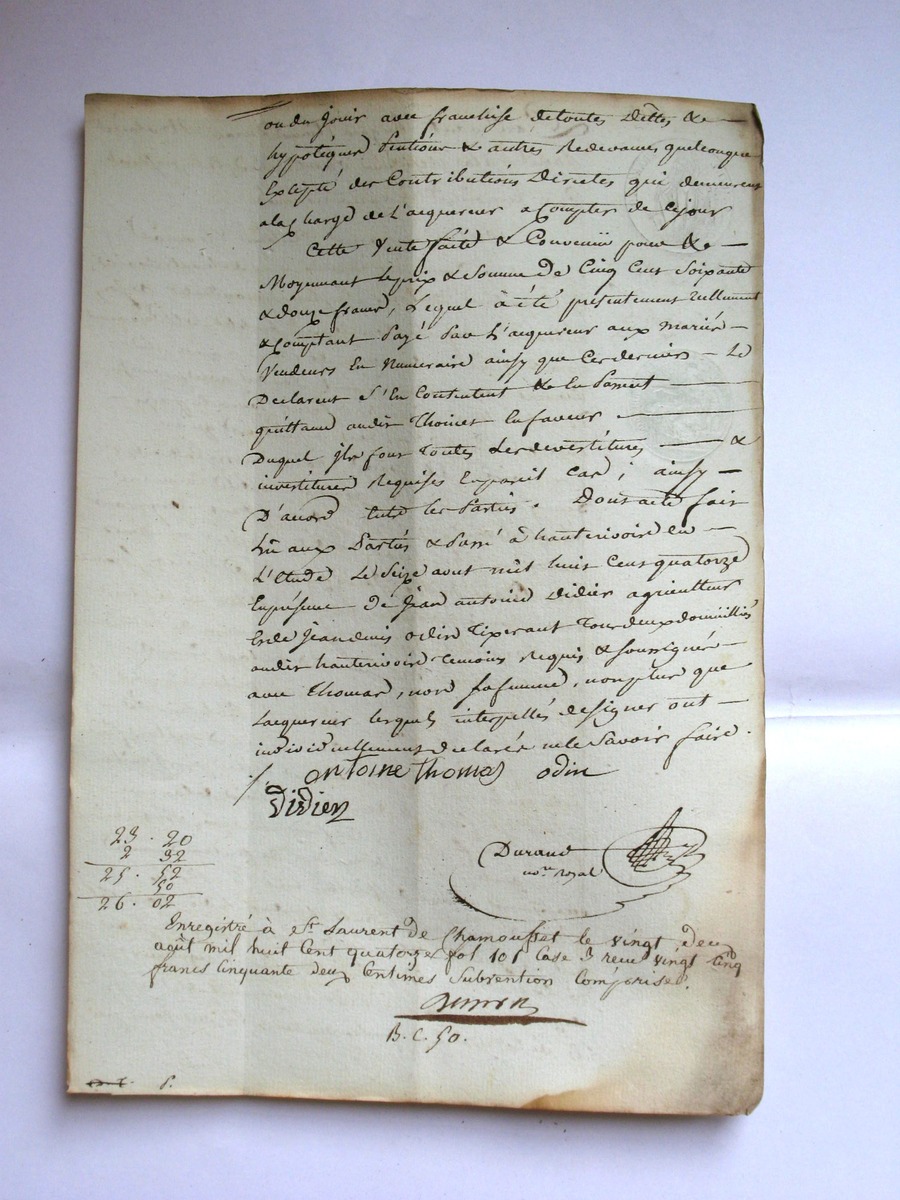 ou du jouir avec franchise de toutes dettes &e —
hypotéques pentions & autres Redevances quelconque
Excepté des Contributions Directes qui demeurent
a la charge de l'acquereur a Compter de ce jour
Cette Vente faité & Convenüe pour &e —
Moyennant le prix & Somme De Cinq Cent Soixante
& douze francs, Lequel à été présentement reellement
& comptant Payé Par L'acquereur aux mariés —
Vendeurs En Numeraire ainsy que Ces derniers — Le
Declarent S'En Contentent &e En Passent —
quittance audit Thoinet En faveur —
Duquel ils font Toutes Les devestitures — &
investitures Requises En pareil cas ; ainsy —
D'acord entre les Parties . Dont acte fait
Lû aux Parties & Passé à hauterivoire En —
L'etude Le Seize aout mil huit Cent quatorze
En présence de Jean antoine Didier agriculteur
Et de Jean denis odin Tixerant Tous deux domiciliés
audit hauterivoire Temoins Requis & Soussignés —
avec Thomas, non sa femme, non plus que
Lacquereur lesquels interpellés de signer ont —
individuellement declarés ne le Savoir faire .
antoine thomas odin
Didier
Durand
no.re royal
23 . 20
2 32
25 . 52
50
26 . 02
Enregistré à St Laurent de Chamousset le vingt deux
août mil huit Cent quatorze fol 101 Case 3 reçu vingt cinq
francs Cinquante deux Centimes Subvention Comprise.
B. C. 50.